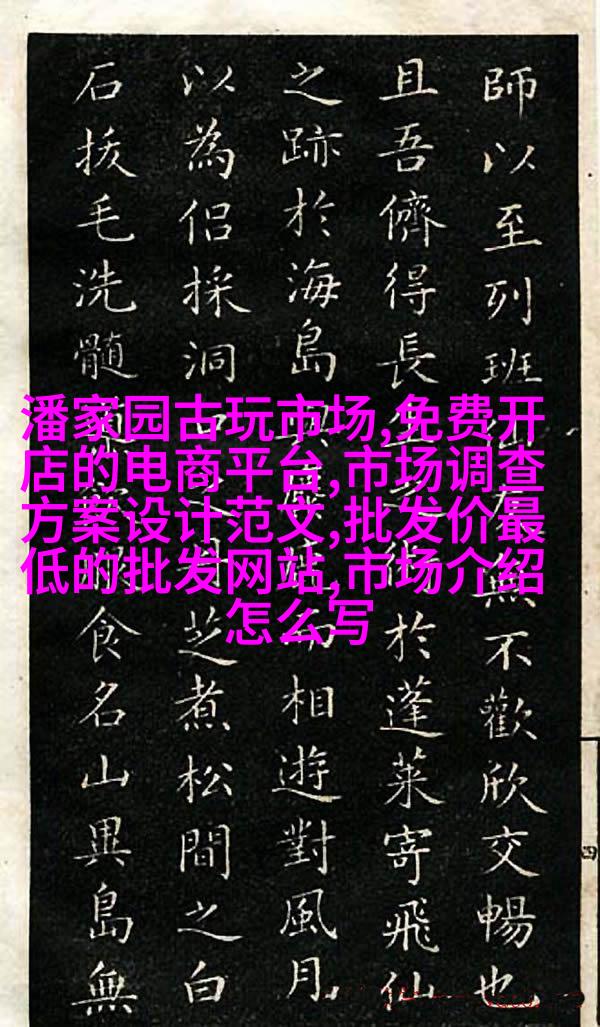 潘家园古玩市场,免费开
店的电商平台,市场调查
方案设计范文,批发价最
低的批发网站,市场介绍
怎么写
師以至列班無不歡欣交暢也
且吾儕得長生術於蓬萊寄飛仙
之跡於海島與而相遊對風月
以為侶採洞芝煮松間之白
石拔毛洗髓食名山異島無